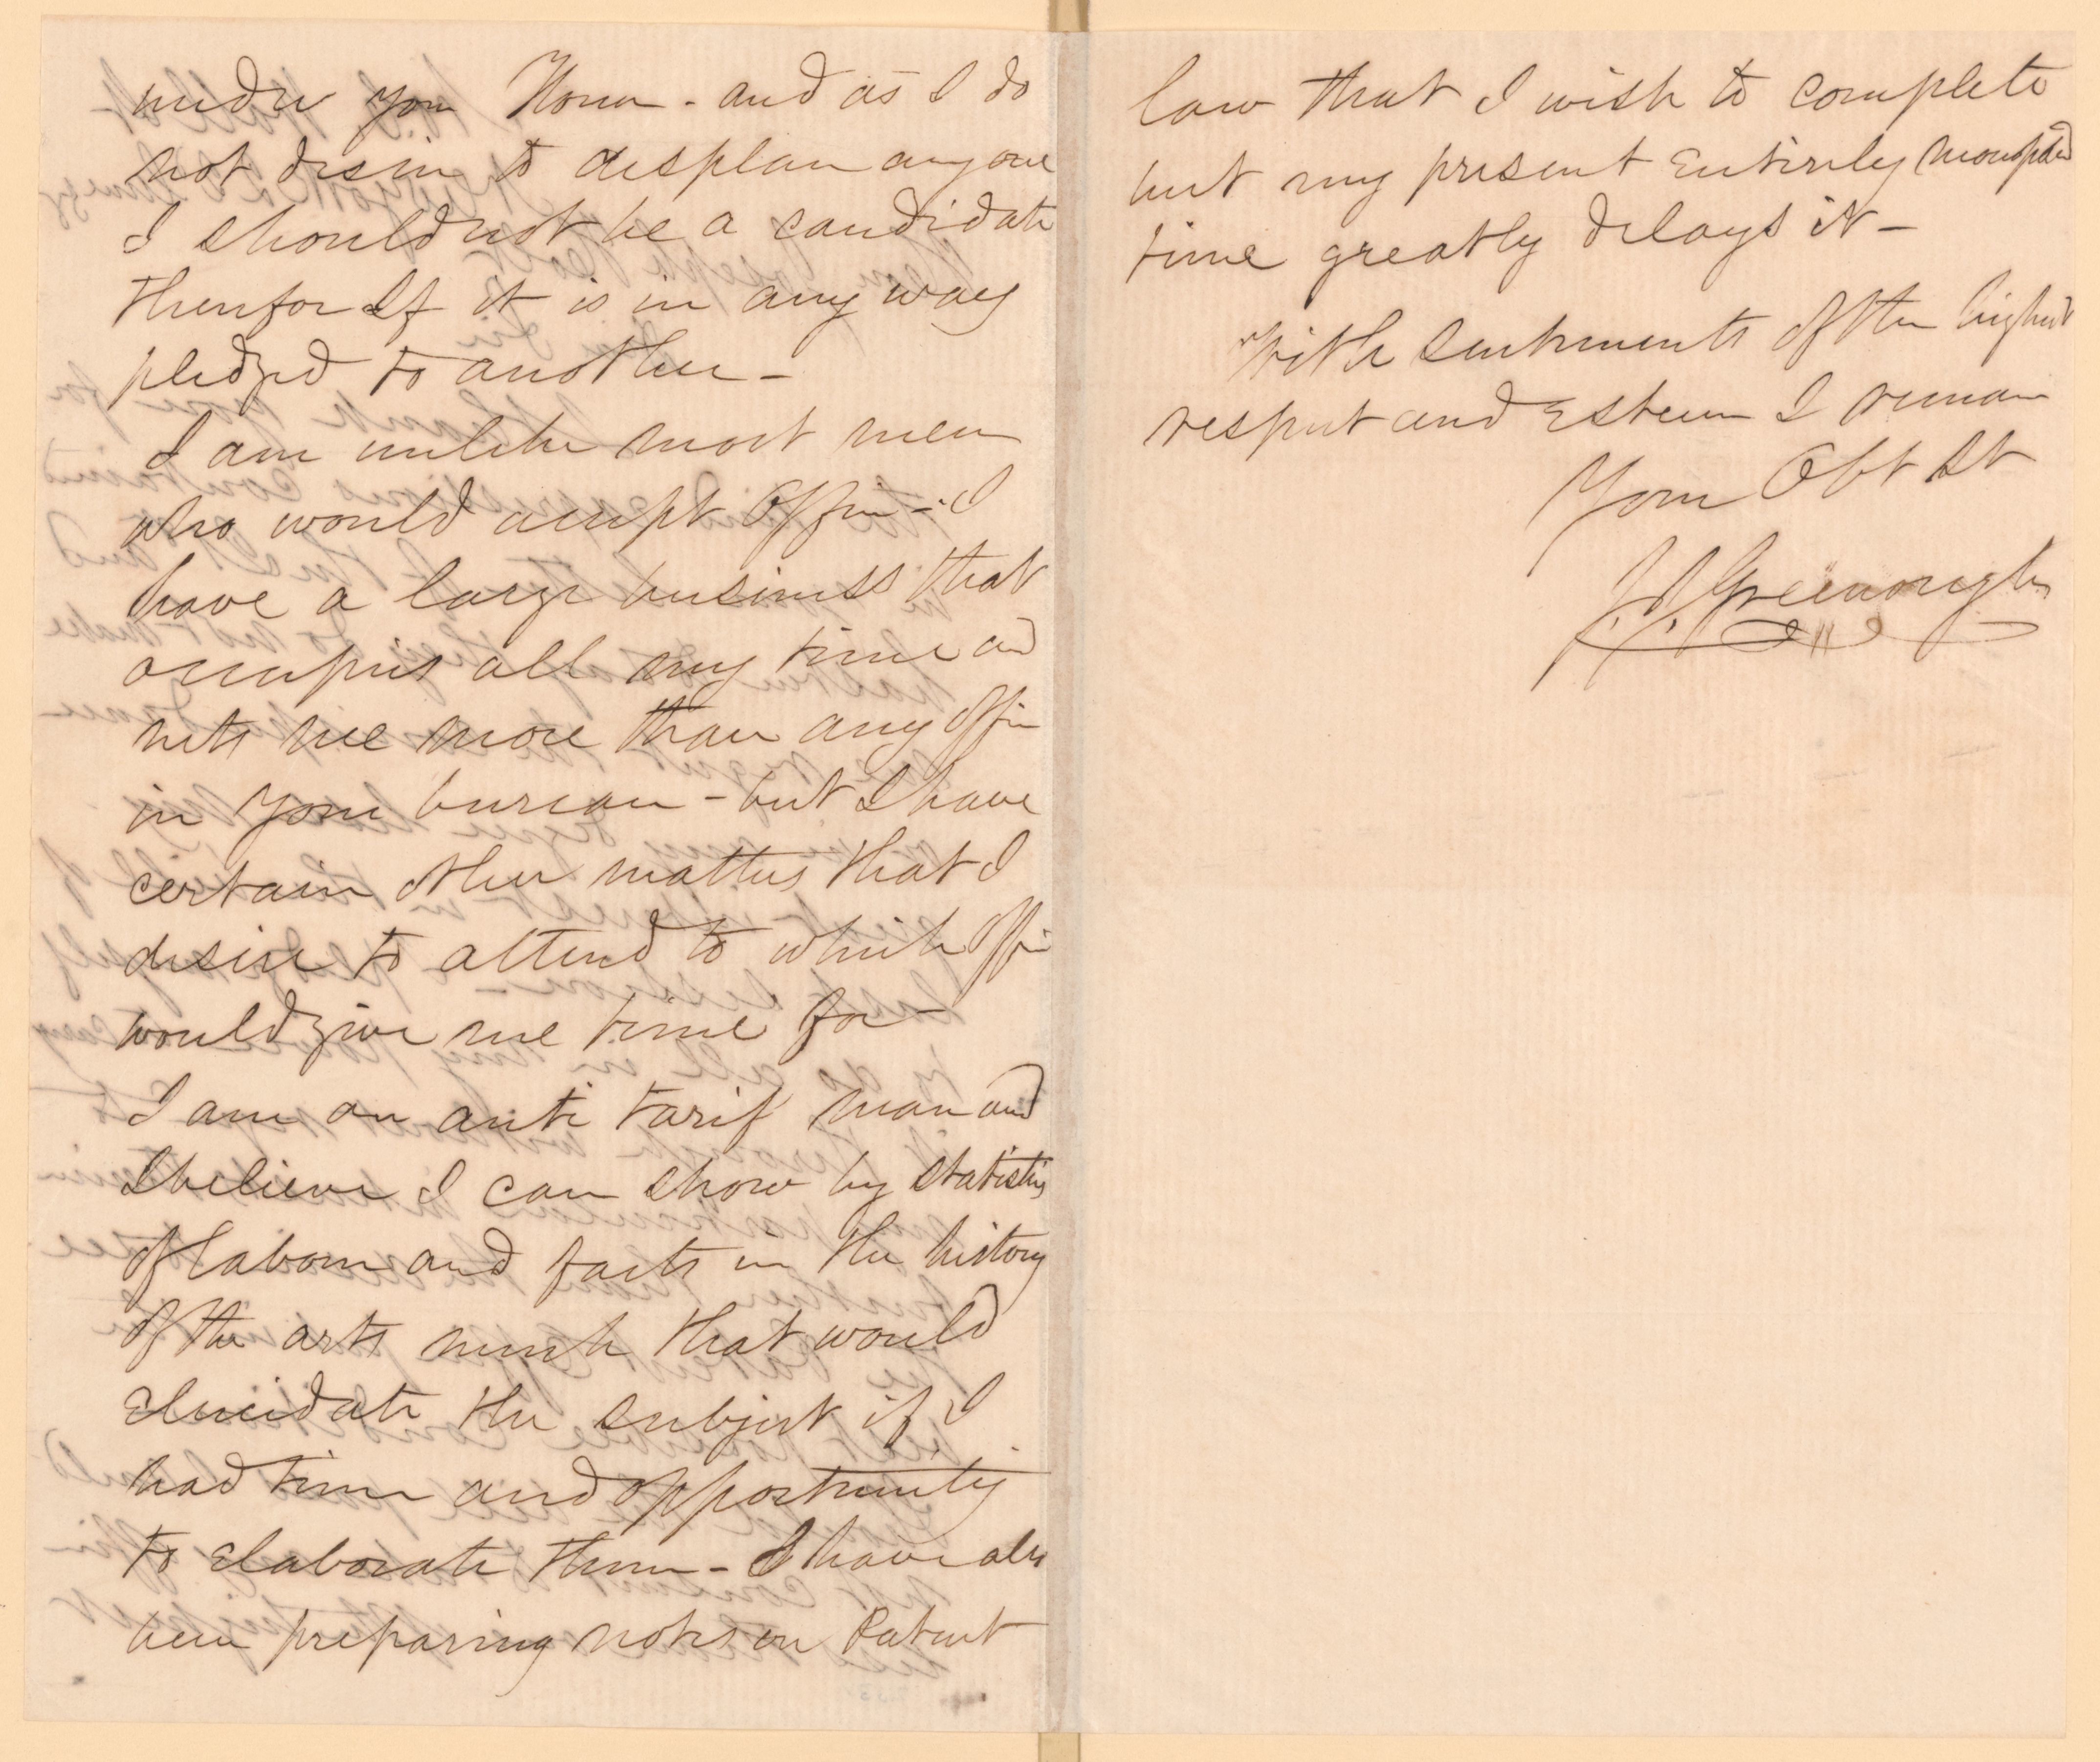 under your Honor - and as I do
not desire to displace anyone
I should not be a candidate
therefor If it is in any way
pledged to another -
I am unlike most men
who would accept office - I
have a large business that
occupies all my time and
nets me more than any office
in your bureau - but I have
certain other matters that I
desire to attend to which office
would give me time for -
I am an anti tarif man and
I believe I can show by statistics
of labour and facts in the history
of the arts much that would
elucidate the subject if I
had time and opportunity
to elaborate them - I have also
been preparing notes on Patent
law that I wish to complete
but my present entirely monopolised
time greatly delays it -
With sentiments of the highest
respect and esteem I remain
Your Obt St
J J Greenough